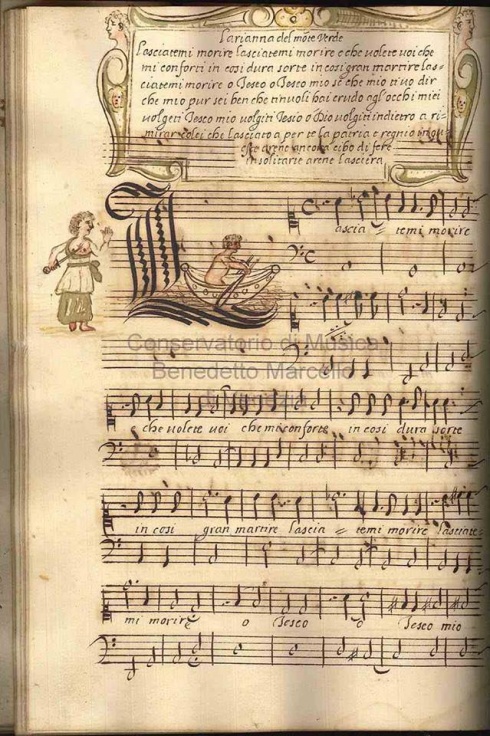 Larianna del mōte Verde
Lasciatemi morire lasciatemi morire e che volete voi che
mi conforti in cosi dura sorte in cosi gran martire las=
ciatemi morire o Teseo o Teseo mio si che mio ti vo dir
che mio pur sei ben che t'involi hai crudo agl'occhi miei
volgeti Teseo mio volgiti Tesio o Dio volgiti indietro a ri=
mirar colei che lasciato a per te la patria e regnio
este arene ancora cibo di fere
insolitarie arene lasciera
L
ascia = temi morire
Conservatorio di Musica
Benedetto Marcello
di Venezia
e che volete voi che mi conforte in cosi dura sorte
in cosi gran martire lascia = temi morire lasciate=
mi morire o Teseo o Teseo mio